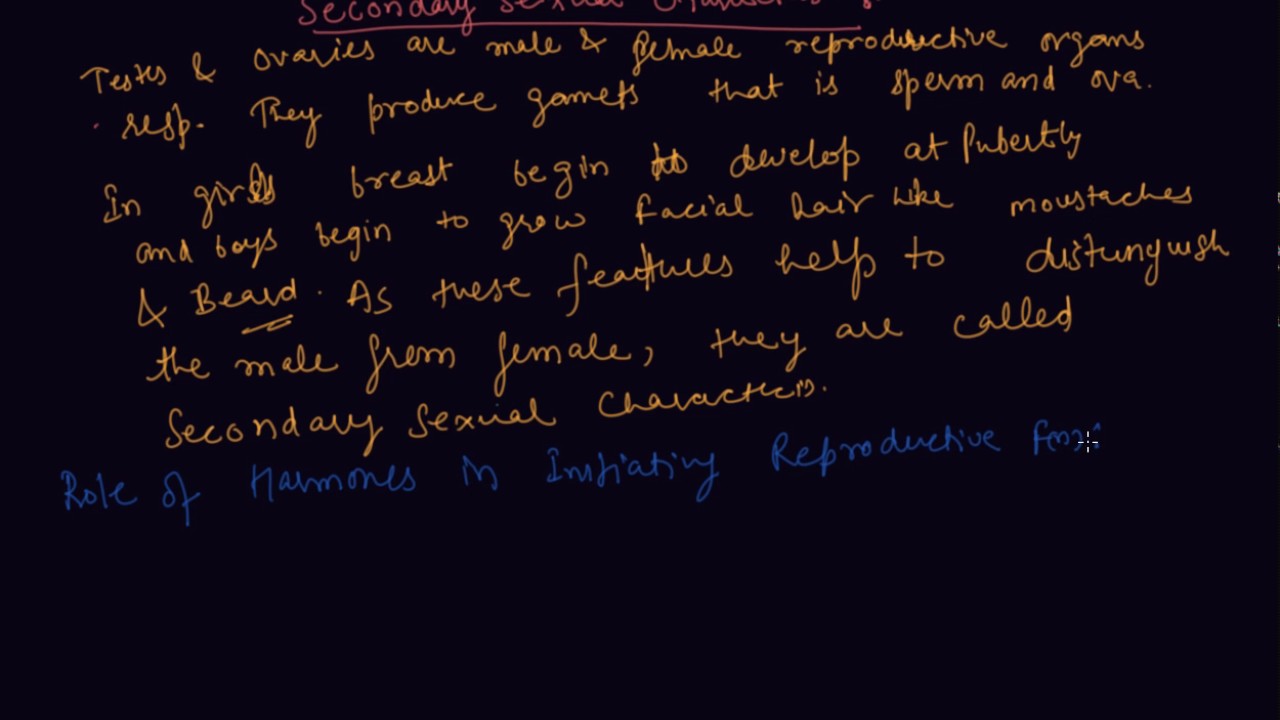 Secondary Sexual
Testes & ovaries are male & female reproductive organs
resp. They produce gamets that is sperm and ova.
In girls breast begin to develop at Pubertly
and boys begin to grow facial hair like moustaches
& Beard. As these features help to distunguish
the male from female, they are called
Secondary Sexual Characters.
Role of Harmones in Initiating Reproductive